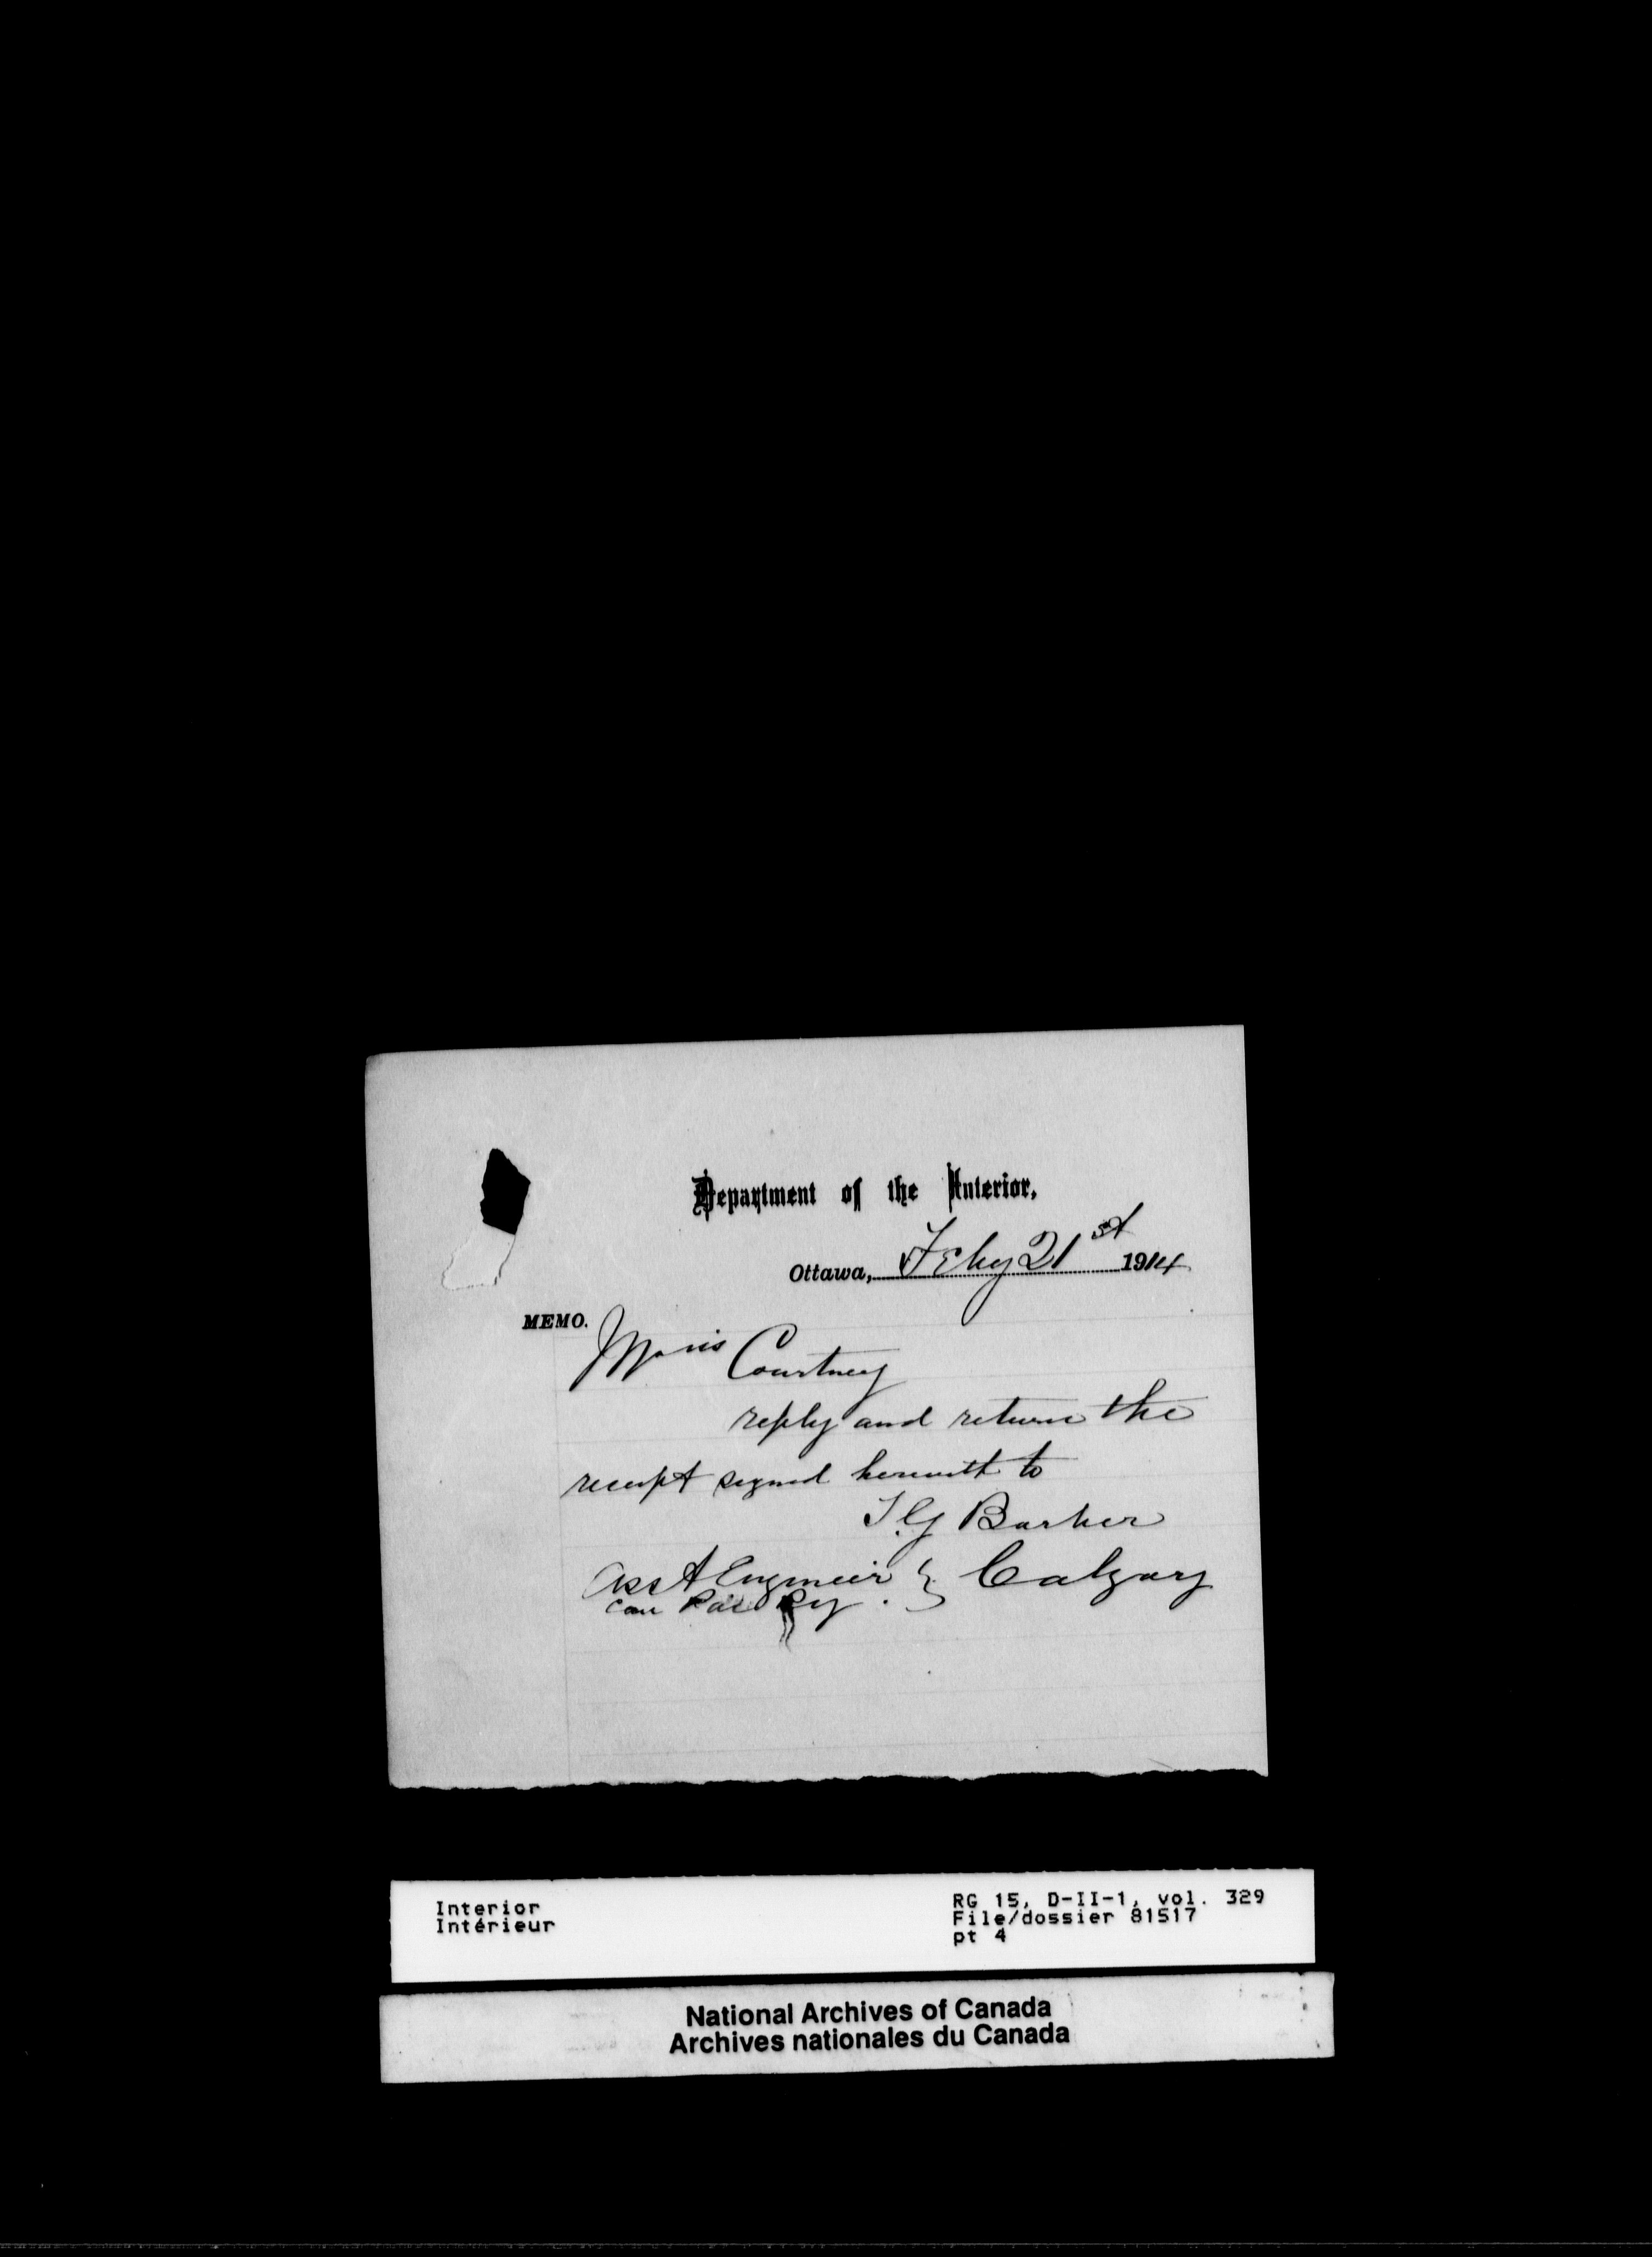 Department of the Interior,
Ottawa, Feby 21st 1914
MEMO.
Courtney
reply and return the
receipt signed herewith to
T. G Barker
Asst Engineer } Calgary
Can Pac Ry.
Interior
Intérieur
RG 15, D-II-1, vol. 329
File/dossier 81517
pt 4
National Archives of Canada
Archives nationales du Canada